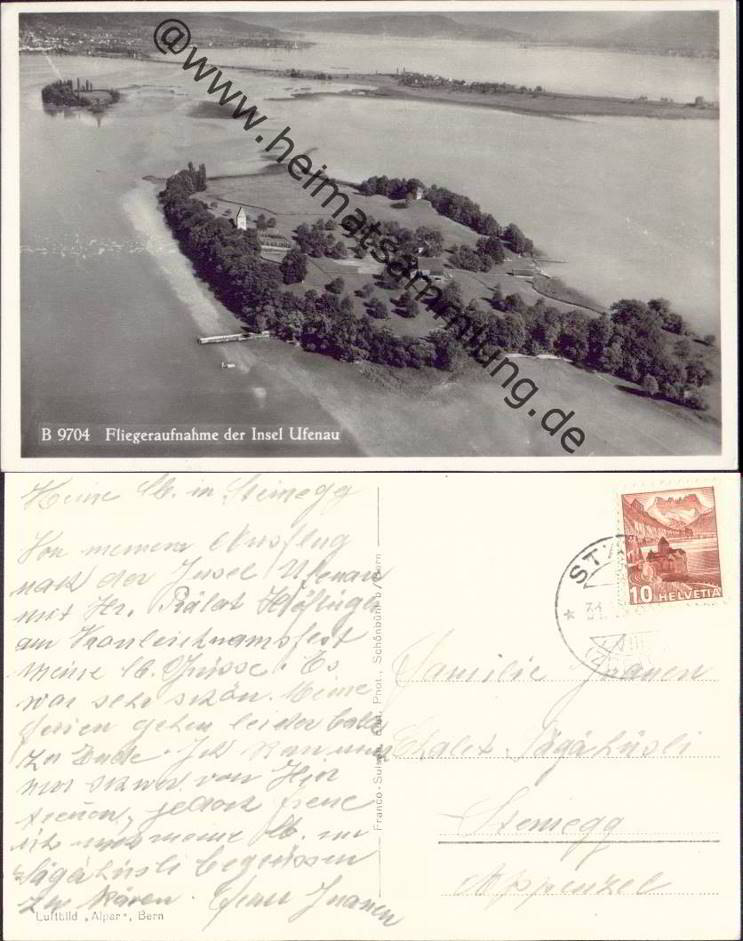 @www.heimatsammlung.de
B 9704 Fliegeraufnahme der Insel Ufenau
Meine lb. in Steinegg
Von meinem Ausflug
nach der Insel Ufenau
mit Hr. Prälat
am Fronleichnamsfest
meine lb. Grüsse. Es
war sehr schön. Meine
Ferien gehen leider bald
zu Ende. Ich kann mich
nur schwer von Hier
trennen, jedoch freue
ich mich meine lb. im
Sägähüsli begrüssen
zu
Luftbild „Alpar", Bern
Franco-Suisse, Edit. Phot., Schönbühl b. Bern
ST
HELVETIA
10
Familie
Chalet Sägähüsli
Steinegg
Appenzel